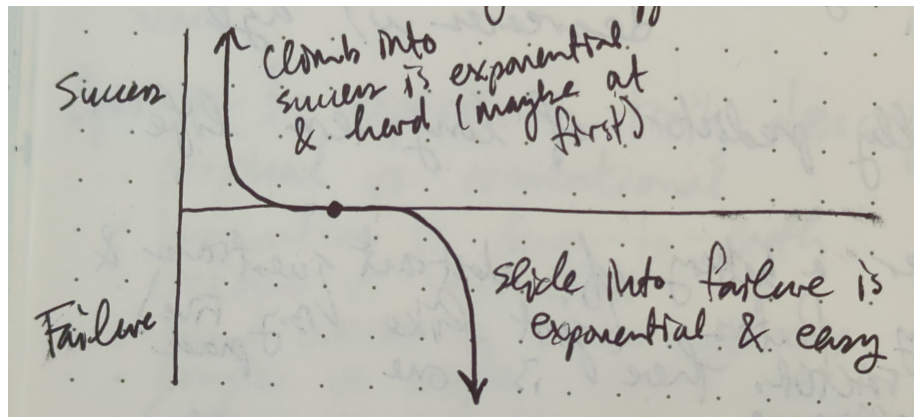 Success
climb into
success is exponential
& hard (maybe at
first)
Failure
slide into failure is
exponential & easy